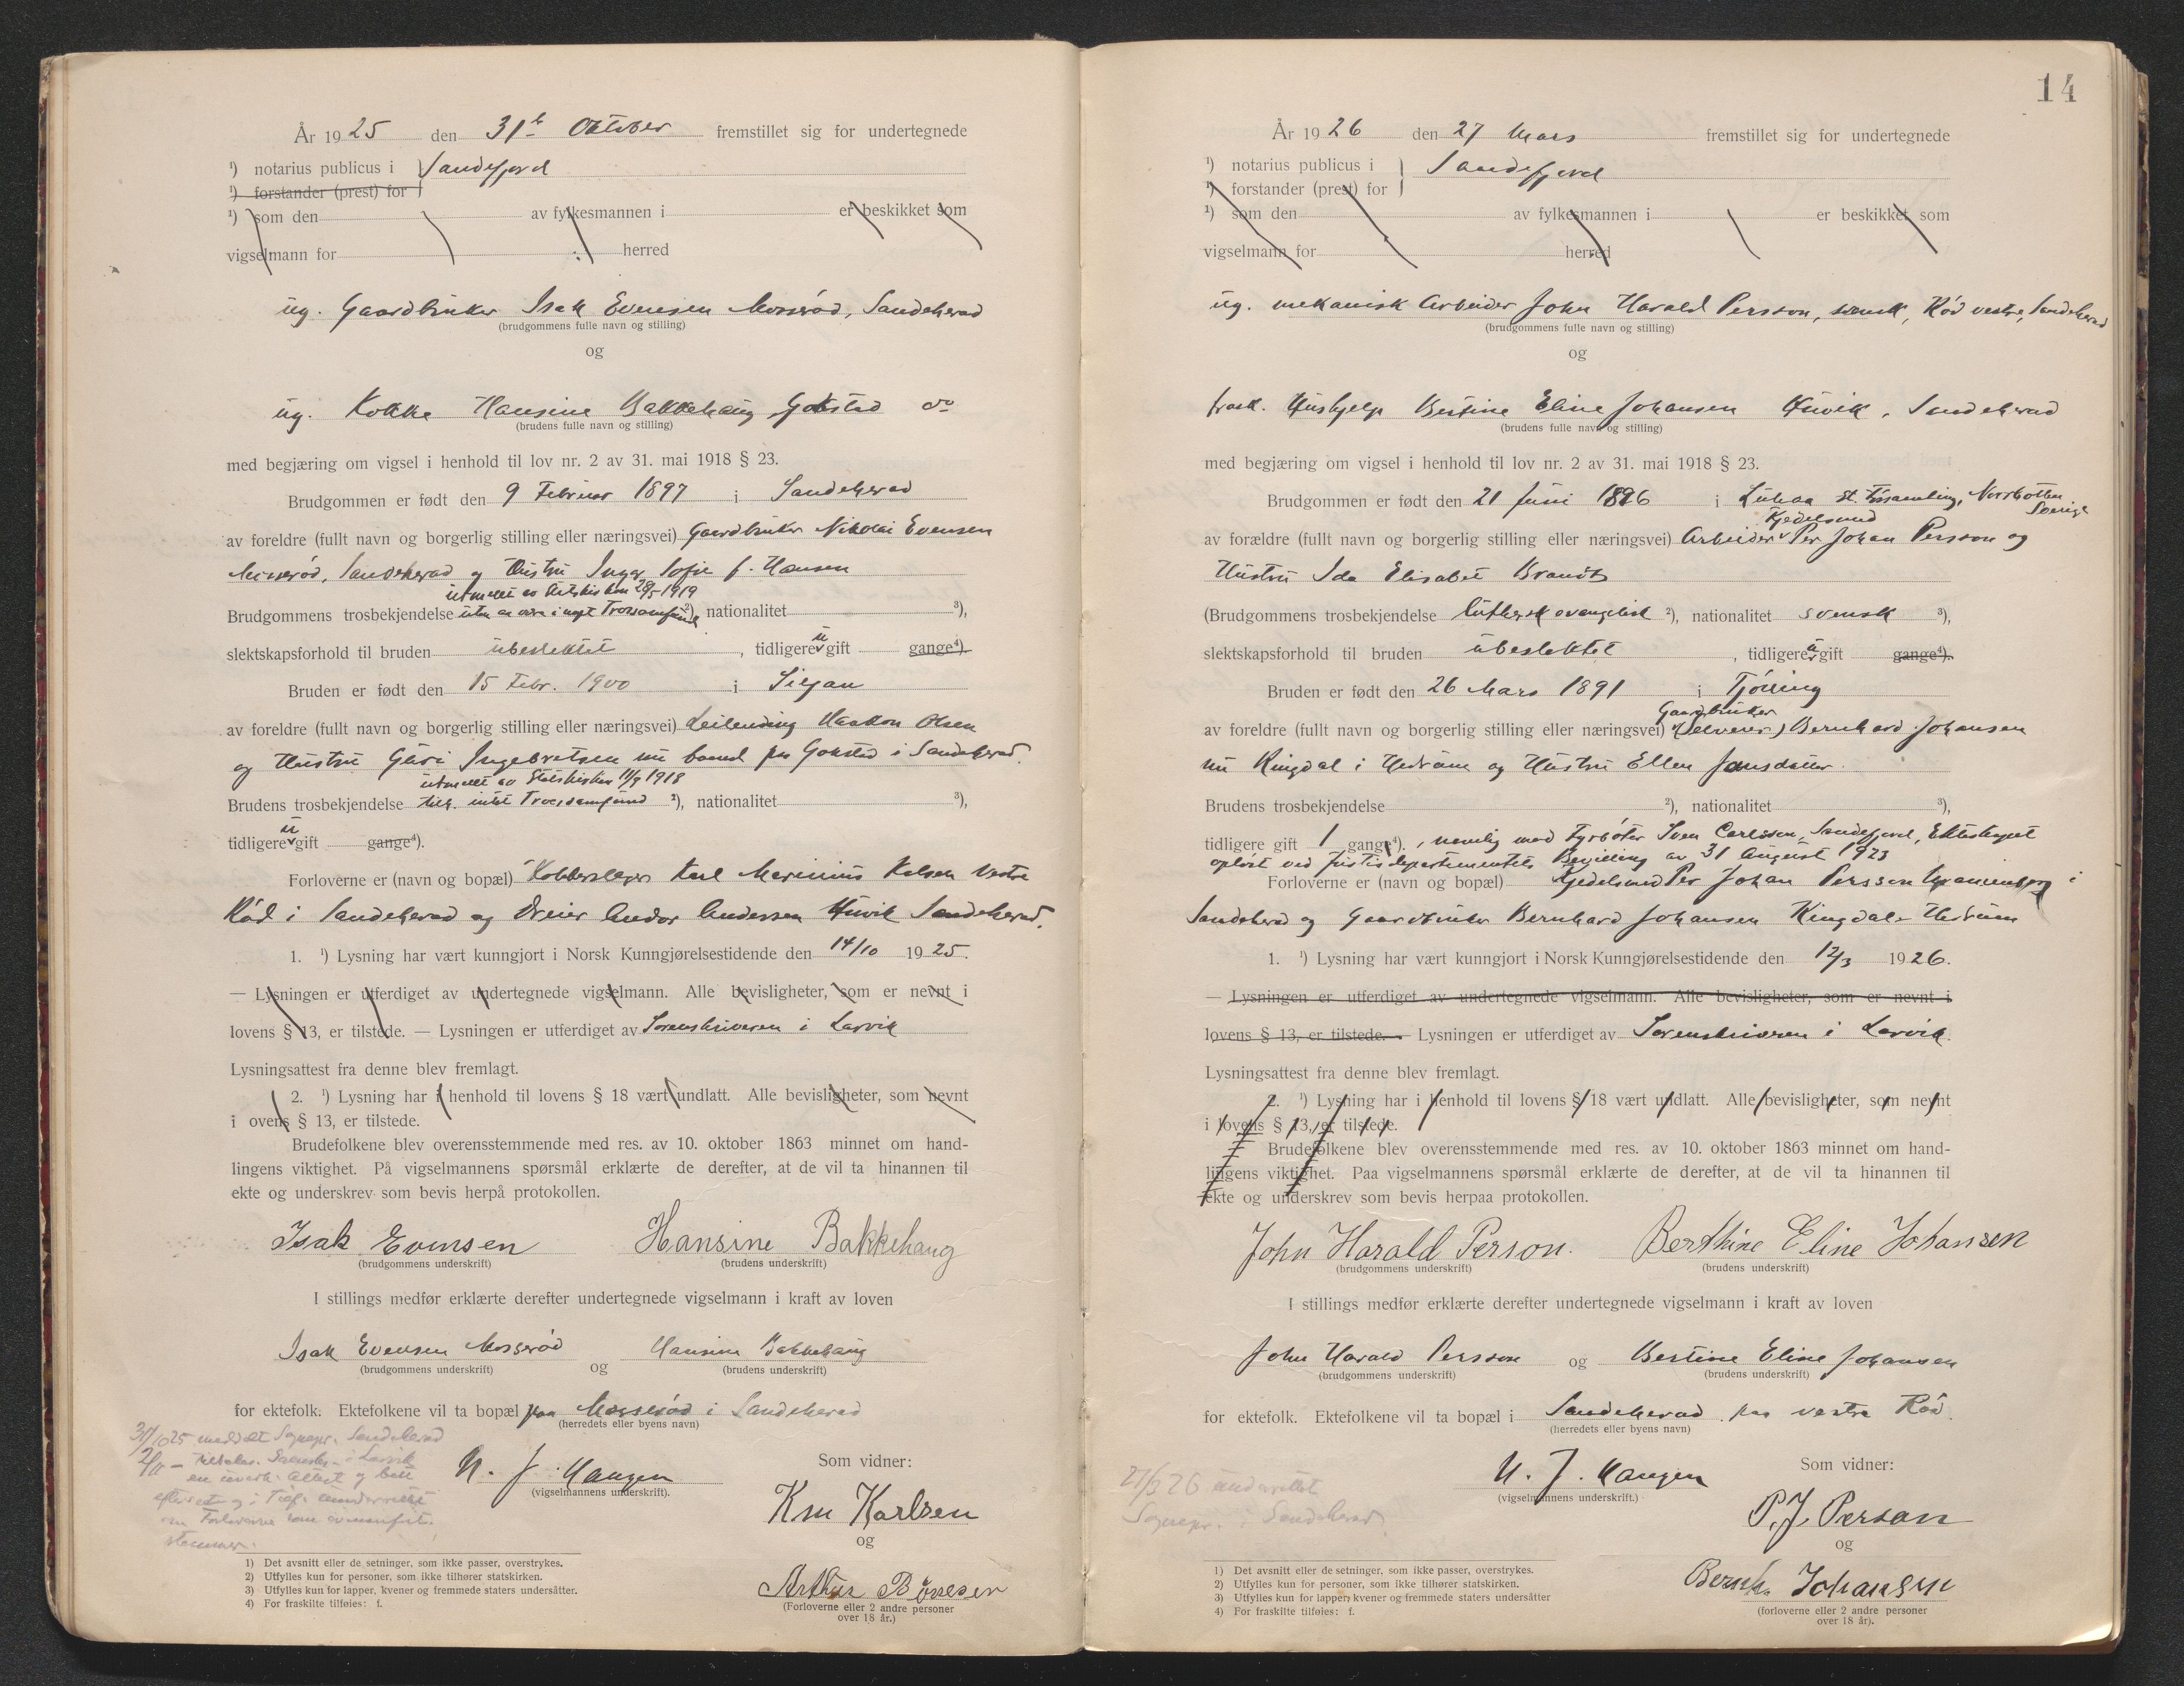 År 1925 den 31te Oktober fremstillet sig for undertegnede
¹) notarius publicus i } Sandefjord
¹) forstander (prest) for
¹) som den av fylkesmannen i er beskikket som
vigselmann for herred
ug. Gaardbruker Isak Evensen Mosserød, Sandeherad
(brudgommens fulle navn og stilling)
og
ug. Kokke Hansine Bakkehaug Gokstad do
(brudens fulle navn og stilling)
med begjæring om vigsel i henhold til lov nr. 2 av 31. mai 1918 § 23.
Brudgommen er født den 9 Februar 1897 i Sandeherad
av foreldre (fullt navn og borgerlig stilling eller næringsvei) Gaardbruker Nikolai Evensen
Mosserød, Sandeherad og Hustru Inger Sofie f. Hansen
utmeldt av Statskirken 29/5 1919
Brudgommens trosbekjendelse uten at være i noget Trossamfund ²), nationalitet ³),
slektskapsforhold til bruden ubeslektet , tidligere u gift gange⁴).
Bruden er født den 15 Febr. 1900 i Siljan
av foreldre (fullt navn og borgerlig stilling eller næringsvei) Leilending Haakon Olsen
og Hustru Guri Ingebretsen nu boend paa Gokstad i Sandeherad.
utmeldt av Statskirken 11/9 1918
Brudens trosbekjendelse tilh. intet Trossamfund ²), nationalitet ³),
tidligere u gift gange⁴).
Forloverne er (navn og bopæl) Kobberslager Karl Marinius Kalsen Vestre
Rød i Sandeherad og Dreier Andor Andersen Huvik Sandeherad.
1. ¹) Lysning har vært kunngjort i Norsk Kunngjørelsestidende den 14/10 1925.
— Lysningen er utferdiget av undertegnede vigselmann. Alle bevisligheter, som er nevnt i
lovens § 13, er tilstede. — Lysningen er utferdiget av Sorenskriveren i Larvik
Lysningsattest fra denne blev fremlagt.
2. ¹) Lysning har i henhold til lovens § 18 vært undlatt. Alle bevisligheter, som nevnt
i ovens § 13, er tilstede.
Brudefolkene blev overensstemmende med res. av 10. oktober 1863 minnet om hand-
lingens viktighet. På vigselmannens spørsmål erklærte de derefter, at de vil ta hinannen til
ekte og underskrev som bevis herpå protokollen.
Isak Evensen Hansine Bakkehaug
(brudgommens underskrift) (brudens underskrift)
I stillings medfør erklærte derefter undertegnede vigselmann i kraft av loven
Isak Evensen Mosserød og Hansine Bakkehaug
(brudgommens underskrift) (brudens underskrift)
for ektefolk. Ektefolkene vil ta bopæl paa Mosserød i Sandeherad
(herredets eller byens navn)
31/10 25 meddelt Sognepr. Sandeherad
N. J. Haugen
(vigselmannens underskrift).
Som vidner:
Km Karlsen
og
Arthur Børresen
(Forloverne eller 2 andre personer
over 18 år.)
1) Det avsnitt eller de setninger, som ikke passer, overstrykes.
2) Utfylles kun for personer, som ikke tilhører statskirken.
3) Utfylles kun for lapper, kvener og fremmede staters undersåtter.
4) For fraskilte tilføies: f.
14
År 1926 den 27 Mars fremstillet sig for undertegnede
¹) notarius publicus i } Sandefjord
¹) forstander (prest) for
¹) som den av fylkesmannen i er beskikket som
vigselmann for herred
ug. mekanisk Arbeider John Harald Persson, svensk, Rød vestre, Sandeherad
(brudgommens fulle navn og stilling)
og
frask. Hushjelp Bertine Eline Johansen Huvik, Sandeherad
(brudens fulle navn og stilling)
med begjæring om vigsel i henhold til lov nr. 2 av 31. mai 1918 § 23.
Brudgommen er født den 21 Juni 1896 i Luleaa st. Församling, Norrbotten Sverige
Kjedelsmed
av forældre (fullt navn og borgerlig stilling eller næringsvei) Arbeider Per Johan Persson og
Hustru Ida Elisabet Brandt
(Brudgommens trosbekjendelse luthersk evangelisk ²), nationalitet svensk ³),
slektskapsforhold til bruden ubeslektet , tidligere u gift gange⁴).
Bruden er født den 26 Mars 1891 i Tjølling
Gaardbruker
av foreldre (fullt navn og borgerlig stilling eller næringsvei) (Selveier) Bernhard Johansen
nu Ringdal i Hedrum og Hustru Ellen Jansdatter.
Brudens trosbekjendelse ²), nationalitet ³),
tidligere gift 1 gang⁴)., nemlig med Fyrbøter Sven Carlsson, Sandefjord, Ekteskapet
opløst ved Justisdepartementets Bevilling av 31 August 1923
Forloverne er (navn og bopæl) Kjedelsmed Per Johan Persson i
Sandeherad og Gaardbruker Bernhard Johansen Ringdal Hedrum
1. ¹) Lysning har vært kunngjort i Norsk Kunngjørelsestidende den 12/3 1926.
— Lysningen er utferdiget av undertegnede vigselmann. Alle bevisligheter, som er nevnt i
lovens § 13, er tilstede. — Lysningen er utferdiget av Sorenskriveren i Larvik.
Lysningsattest fra denne blev fremlagt.
2. ¹) Lysning har i henhold til lovens § 18 vært undlatt. Alle bevisligheter, som nevnt
i lovens § 13, er tilstede.
Brudefolkene blev overensstemmende med res. av 10. oktober 1863 minnet om hand-
lingens viktighet. Paa vigselmannens spørsmål erklærte de derefter, at de vil ta hinannen til
ekte og underskrev som bevis herpaa protokollen.
John Harald Person. Berthine Eline Johansen
(brudgommens underskrift) (brudens underskrift)
I stillings medfør erklærte derefter undertegnede vigselmann i kraft av loven
John Harald Persson og Bertine Eline Johansen
(brudgommens underskrift) (brudens underskrift)
for ektefolk. Ektefolkene vil ta bopæl i Sandeherad paa vestre Rød.
(herredets eller byens navn)
27/3 26 underrettet
Sognepr. i Sandeherad.
N. J. Haugen
(vigselmannens underskrift.)
Som vidner:
P. J. Person
og
Bernh. Johansen
(forloverne eller 2 andre personer
over 18 år).
1) Det avsnitt eller de setninger, som ikke passer, overstrykes.
2) Utfylles kun for personer, som ikke tilhører statskirken.
3) Utfylles kun for lapper, kvener og fremmede staters undersåtter
4) For fraskilte tilføies: f.